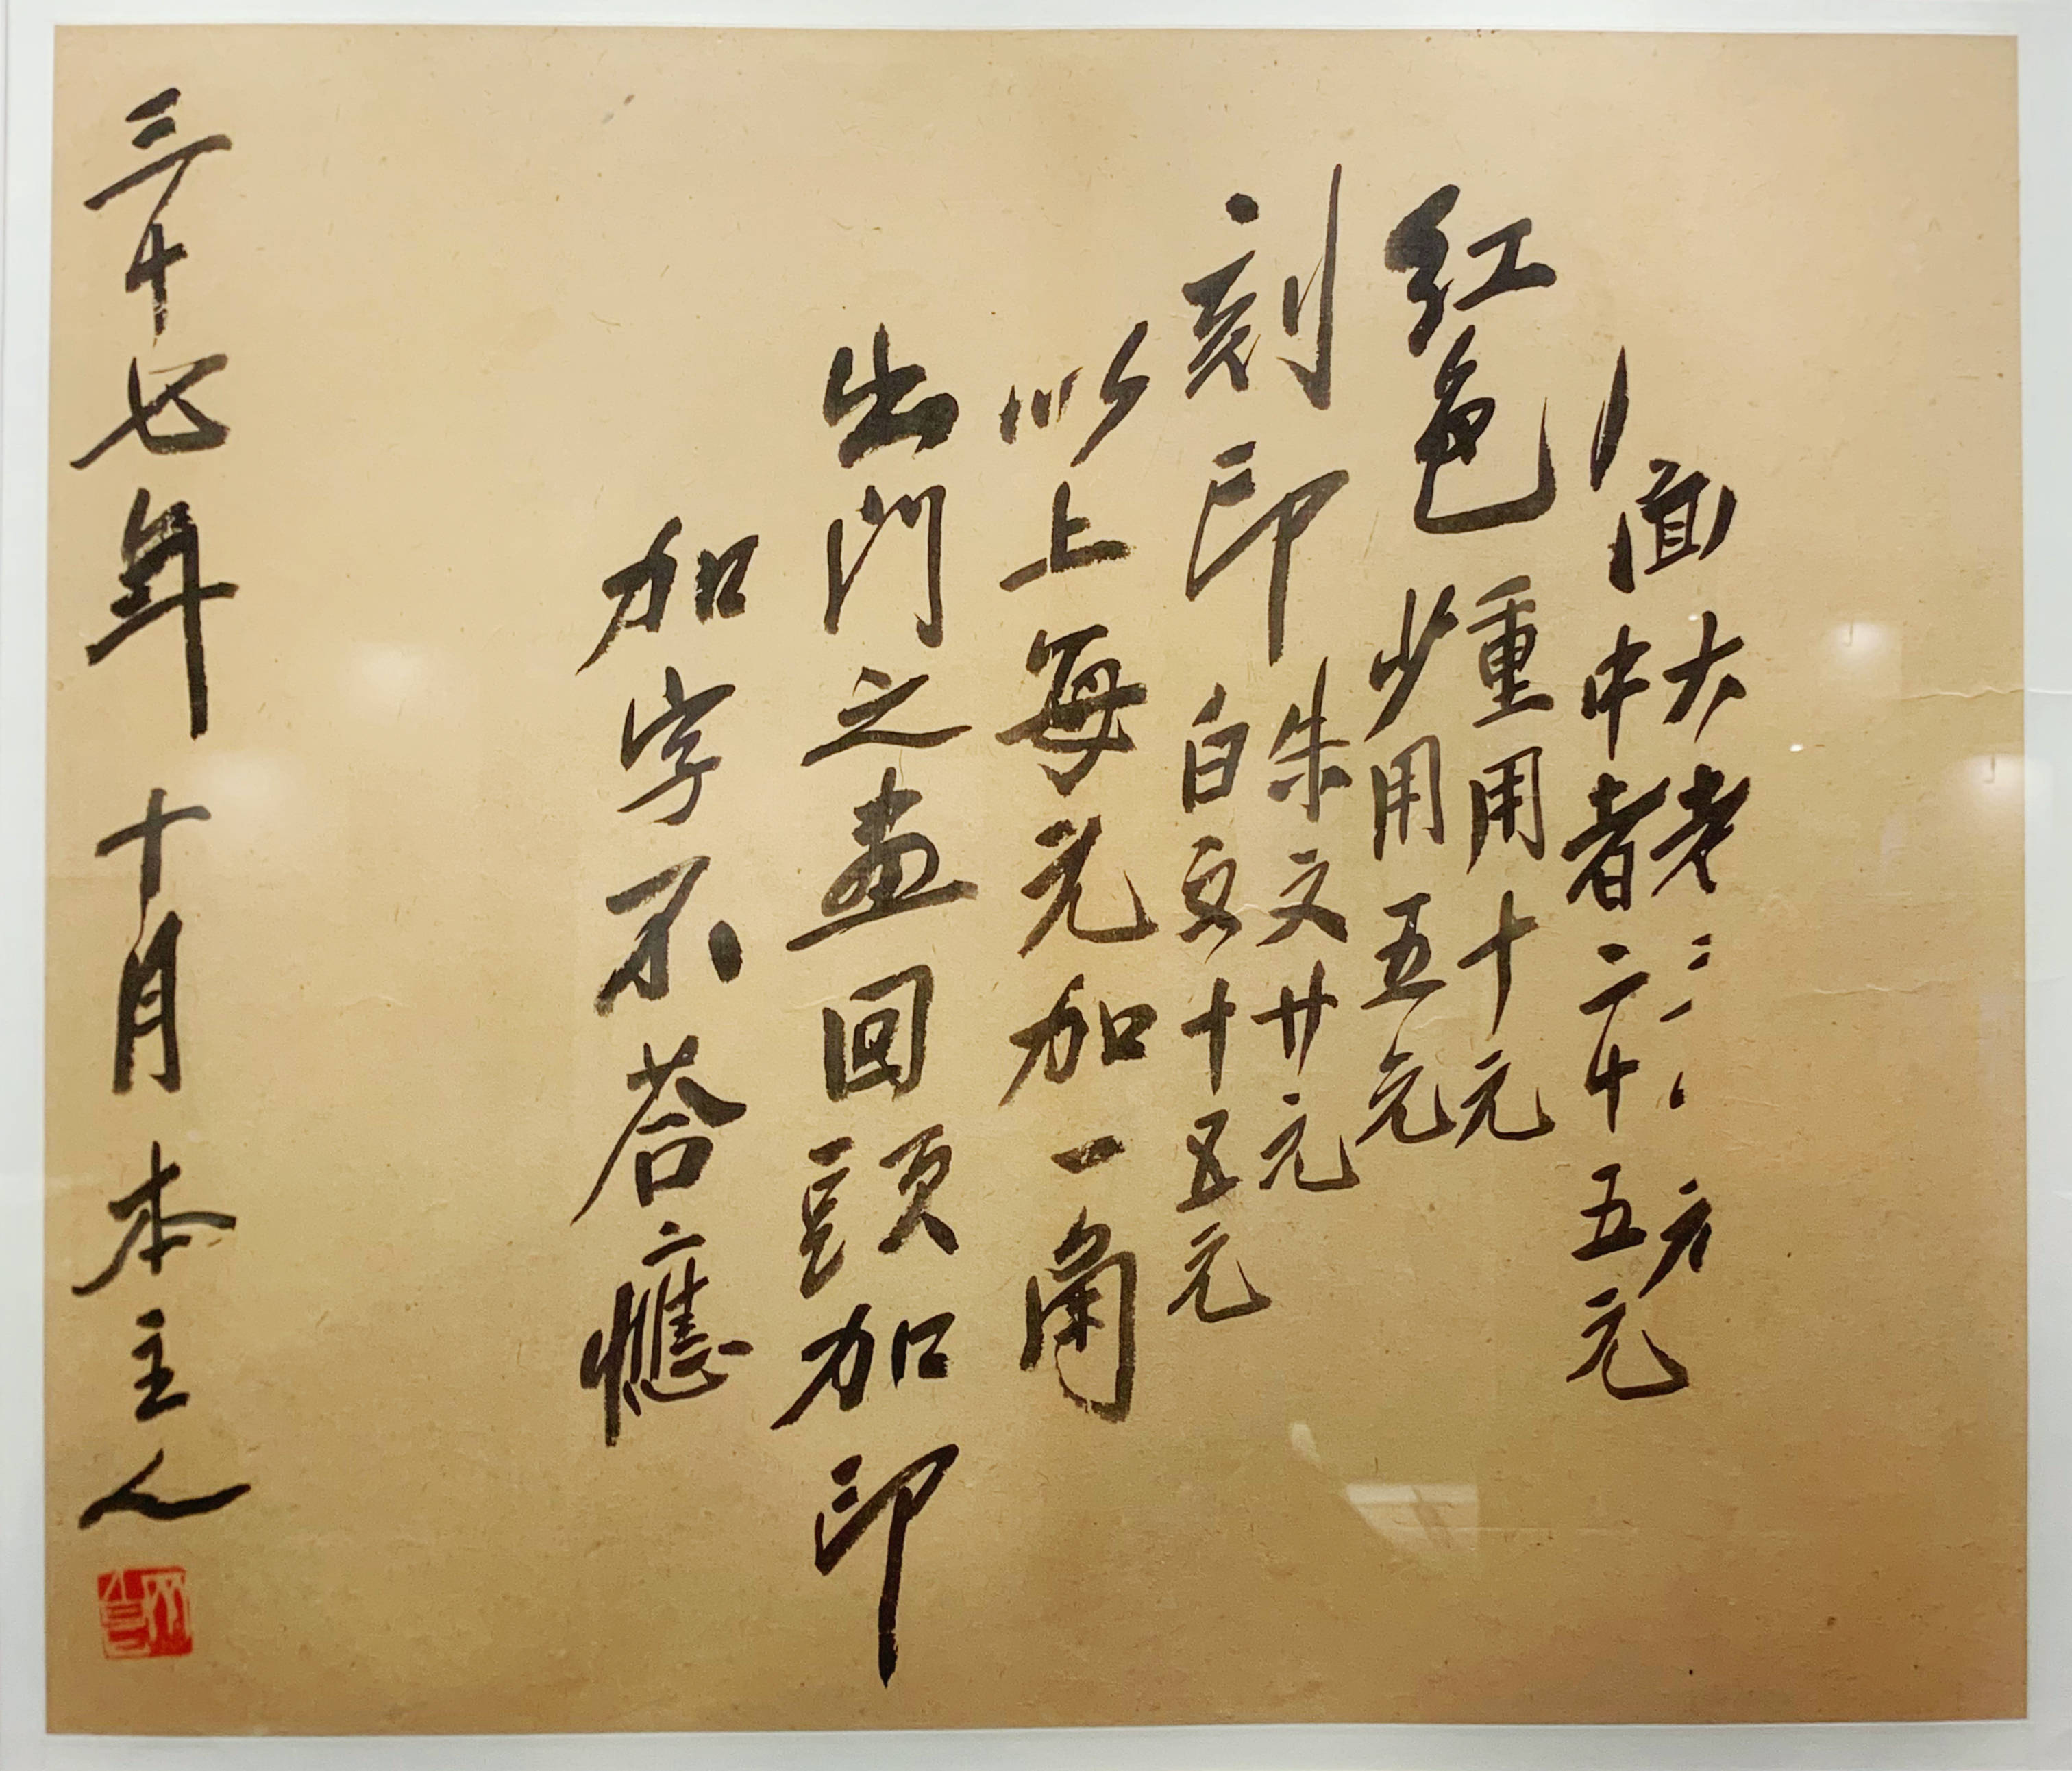 面
大者元
中者二十五元
紅色
重用十元
少用五元
刻印
朱文廿元
白文十五元
以上每元加一角
出門之畫回頭加印
加字不荅應
三十七年十月本主人